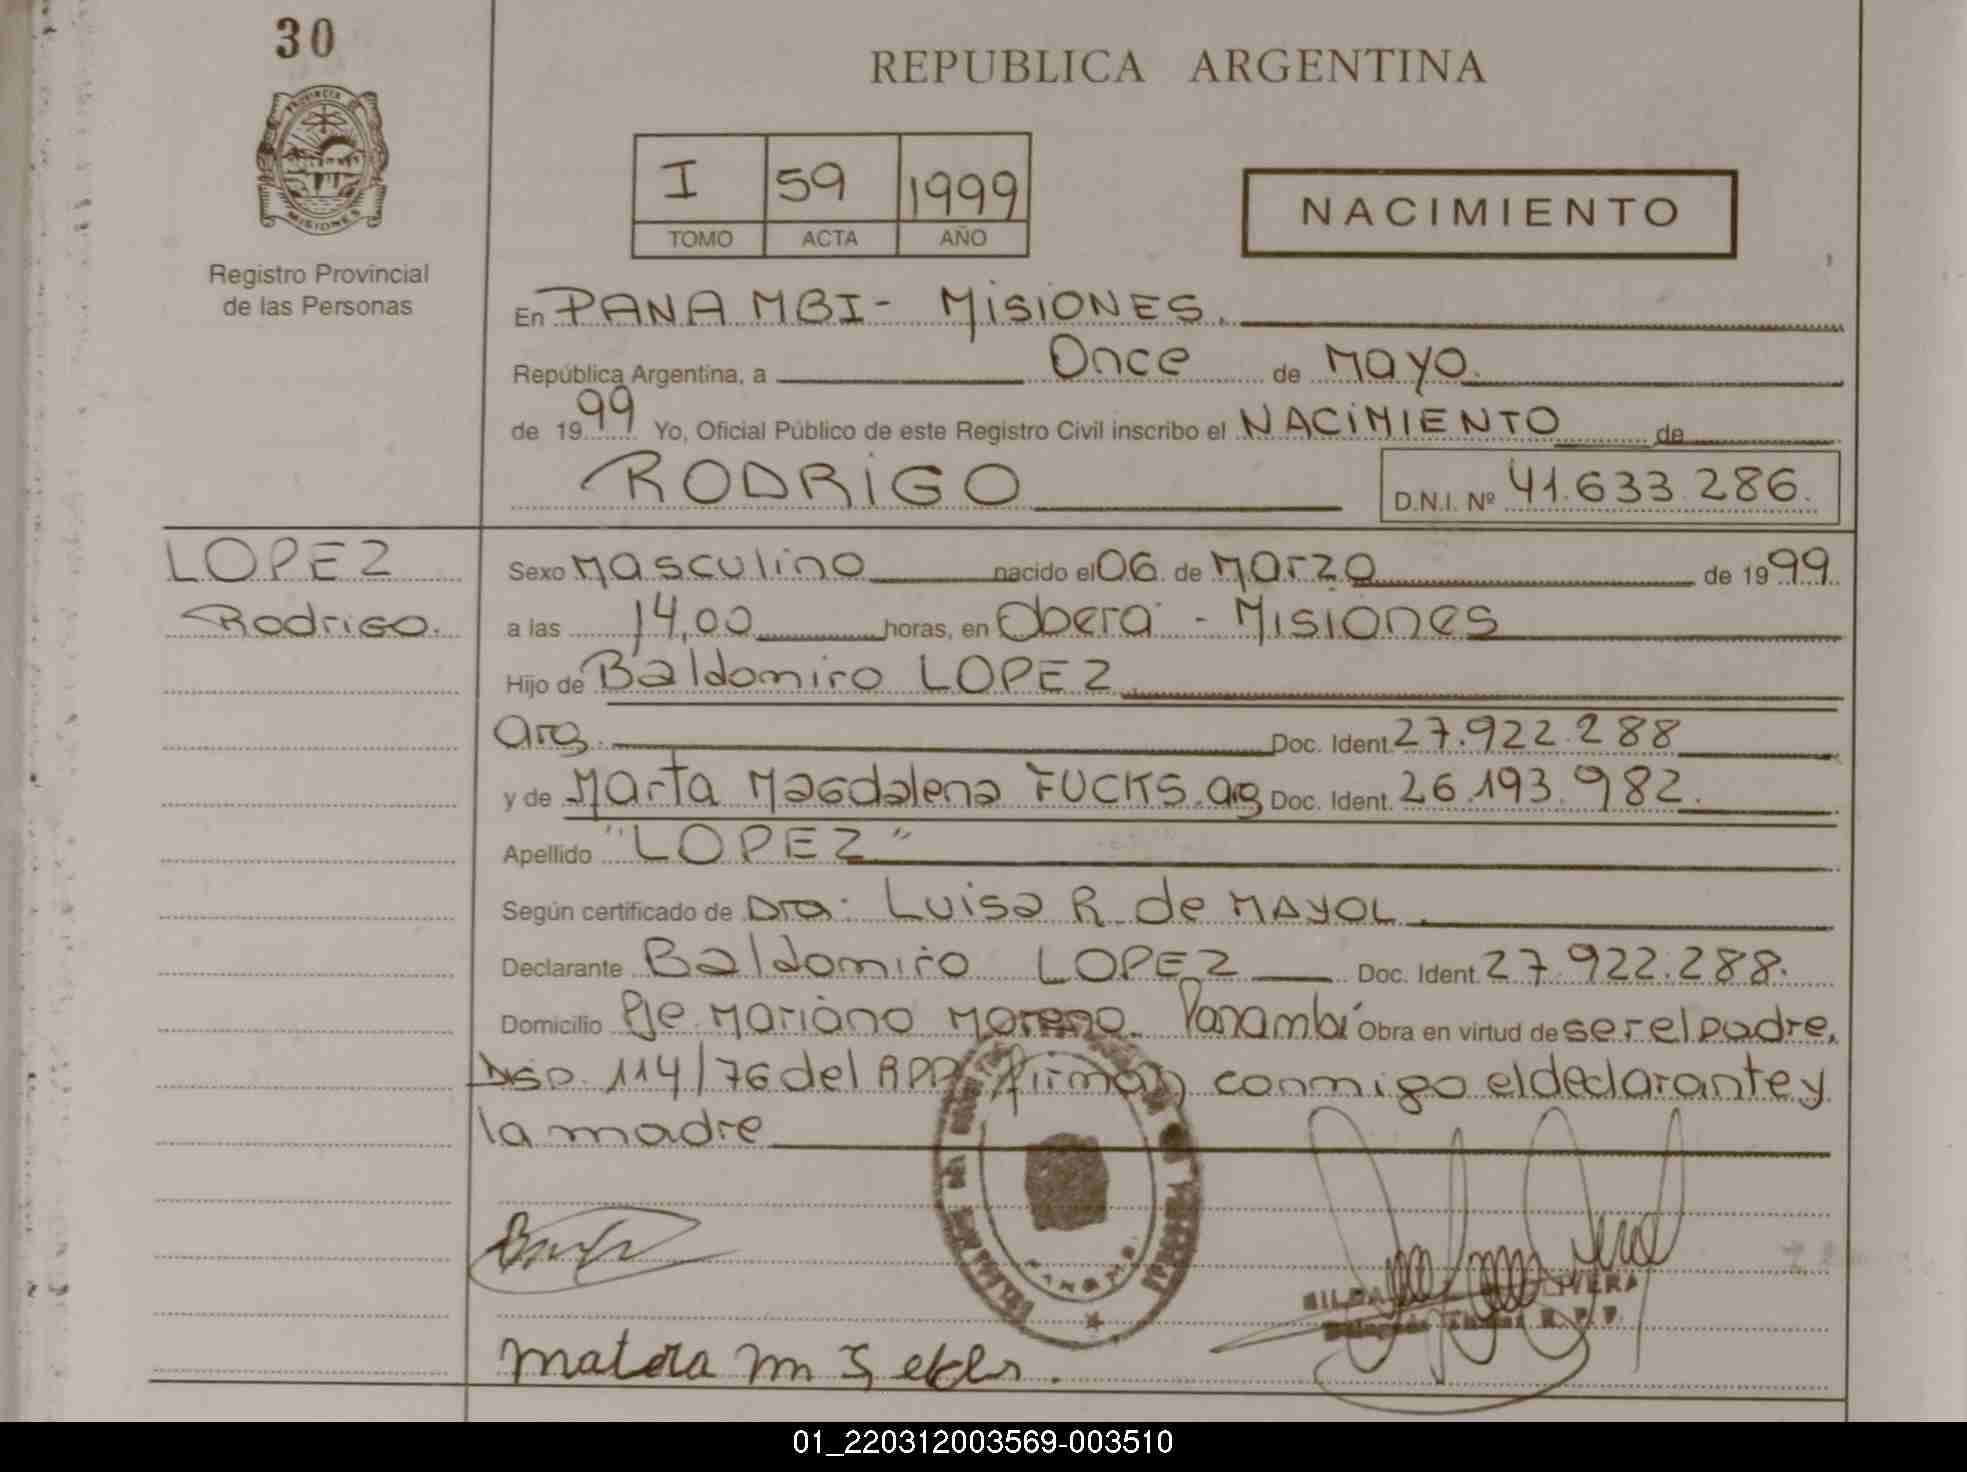 30
REPUBLICA ARGENTINA
PROVINCIA DE
MISIONES
I 59 1999
TOMO ACTA AÑO
NACIMIENTO
Registro Provincial
de las Personas
En PANAMBI - MISIONES.
República Argentina, a Once de Mayo.
de 1999 Yo, Oficial Público de este Registro Civil inscribo el NACIMIENTO de
RODRIGO D.N.I. Nº 41.633.286.
LOPEZ
Rodrigo.
Sexo Masculino nacido el 06 de Marzo de 1999.
a las 14,00 horas, en Oberá - Misiones
Hijo de Baldomiro LOPEZ
arg. Doc. Ident. 27.922.288
y de Marta Magdalena FUCKS. arg Doc. Ident. 26.193.982.
Apellido "LOPEZ"
Según certificado de Dra. Luisa R. de MAYOL.
Declarante Baldomiro LOPEZ Doc. Ident. 27.922.288.
Domicilio Pje Mariano Moreno. Panambí Obra en virtud de ser el padre.
Disp. 114/76 del RPP firman conmigo el declarante y
la madre
01_220312003569-003510